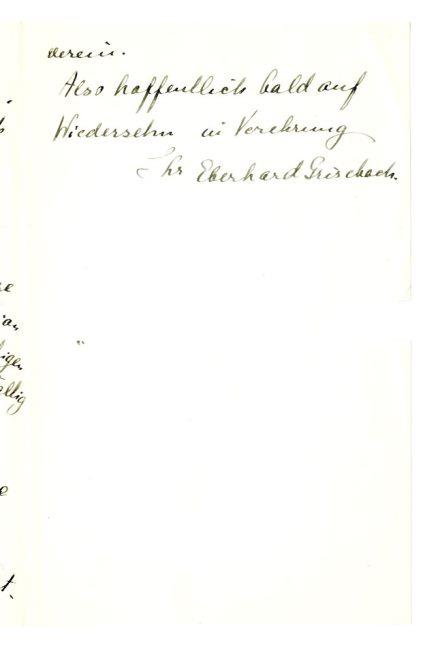 verein.
Also hoffentlich bald auf
Wiedersehn in Verehrung
Ihr Eberhard Grisebach.